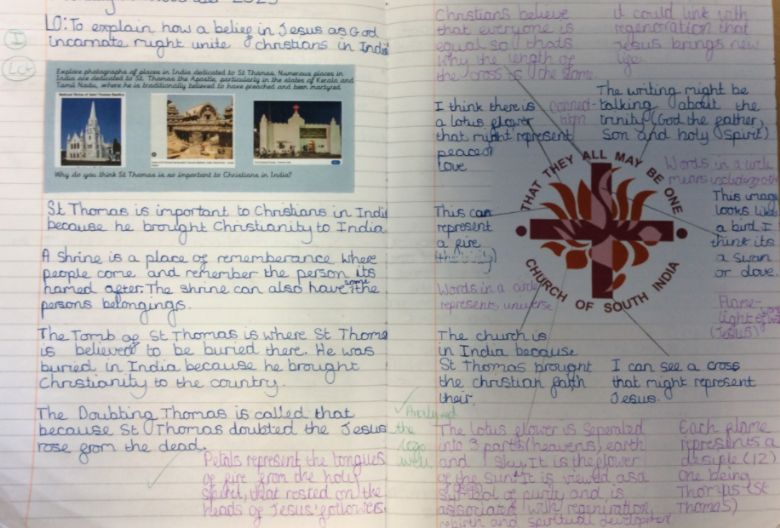 LO: To explain how a belief in Jesus as God
incarnate might unite christians in Indi
I
Explore photographs of places in India dedicated to St Thomas. Numerous places in
India are dedicated to St. Thomas the Apostle, particularly in the states of Kerala and
Tamil Nadu, where he is traditionally believed to have preached and been martyred.
Why do you think St Thomas is so important to Christians in India?
St Thomas is important to Christians in Indi
because he brought Christianity to India
A shrine is a place of rememberance where
people come and remember the person its
named after. The shrine can also have some the
persons belongings.
The Tomb of St Thomas is where St Thoma
is believed to be buried there. He was
buried in India because he brought
Christianity to the country.
The Doubting Thomas is called that
because St Thomas doubted the Jesus
rose from the dead.
Petals represent the tongues
of fire from the holy
spirit, that rested on the
heads of Jesus' followers
Christians believe
that everyone is
equal so thats
why the length of
the cross is the same.
I could link with
regeneration that
Jesus brings new
life.
I think there is
a lotus flower
that might represent
peace
love
The writing might be
talking about the
trinity (God the father,
Son and holy spirit)
Words in a circle
means including
This can
represent
a fire
THAT THEY ALL MAY BE ONE
CHURCH OF SOUTH INDIA
This image
looks like
a bird I
think its
a swan
or dove
Words in a circle
represents universe
Flame-
light of
(Jesus)
The church is
in India because
St Thomas brought
the christian faith
their.
I can see a cross
that might represent
Jesus.
Analysed
the
logo
well
The lotus flower is seperated
into 3 parts (heavens, earth
and sky. It is the flower
of the sun. It is viewed as a
symbol of purity and is
associated with regeneration,
rebirth and spiritual
Each flame
represents a
disciple (12)
one being
Thomas (St
Thomas)